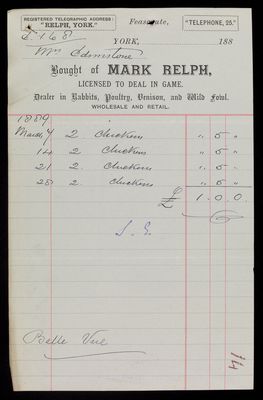 REGISTERED TELEGRAPHIC ADDRESS:
"RELPH, YORK."
Feasegate,
"TELEPHONE, 25."
YORK, 188
Mrs Edmistone
Bought of MARK RELPH,
LICENSED TO DEAL IN GAME.
Dealer in Rabbits, Poultry, Venison, and Wild Fowl.
WHOLESALE AND RETAIL.
1889
March 7 2 Chickens " 5 "
14 2 Chickens " 5 "
21 2 Chickens " 5 "
28 2 Chickens " 5 "
£ 1 . 0 . 0
Belle Vue
14